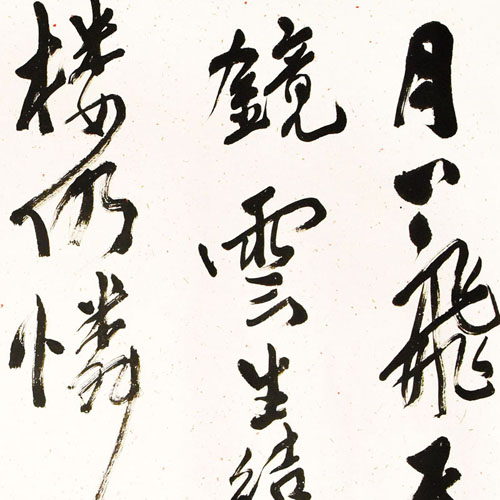 月下飛天
鏡雲生結
楼仍憐